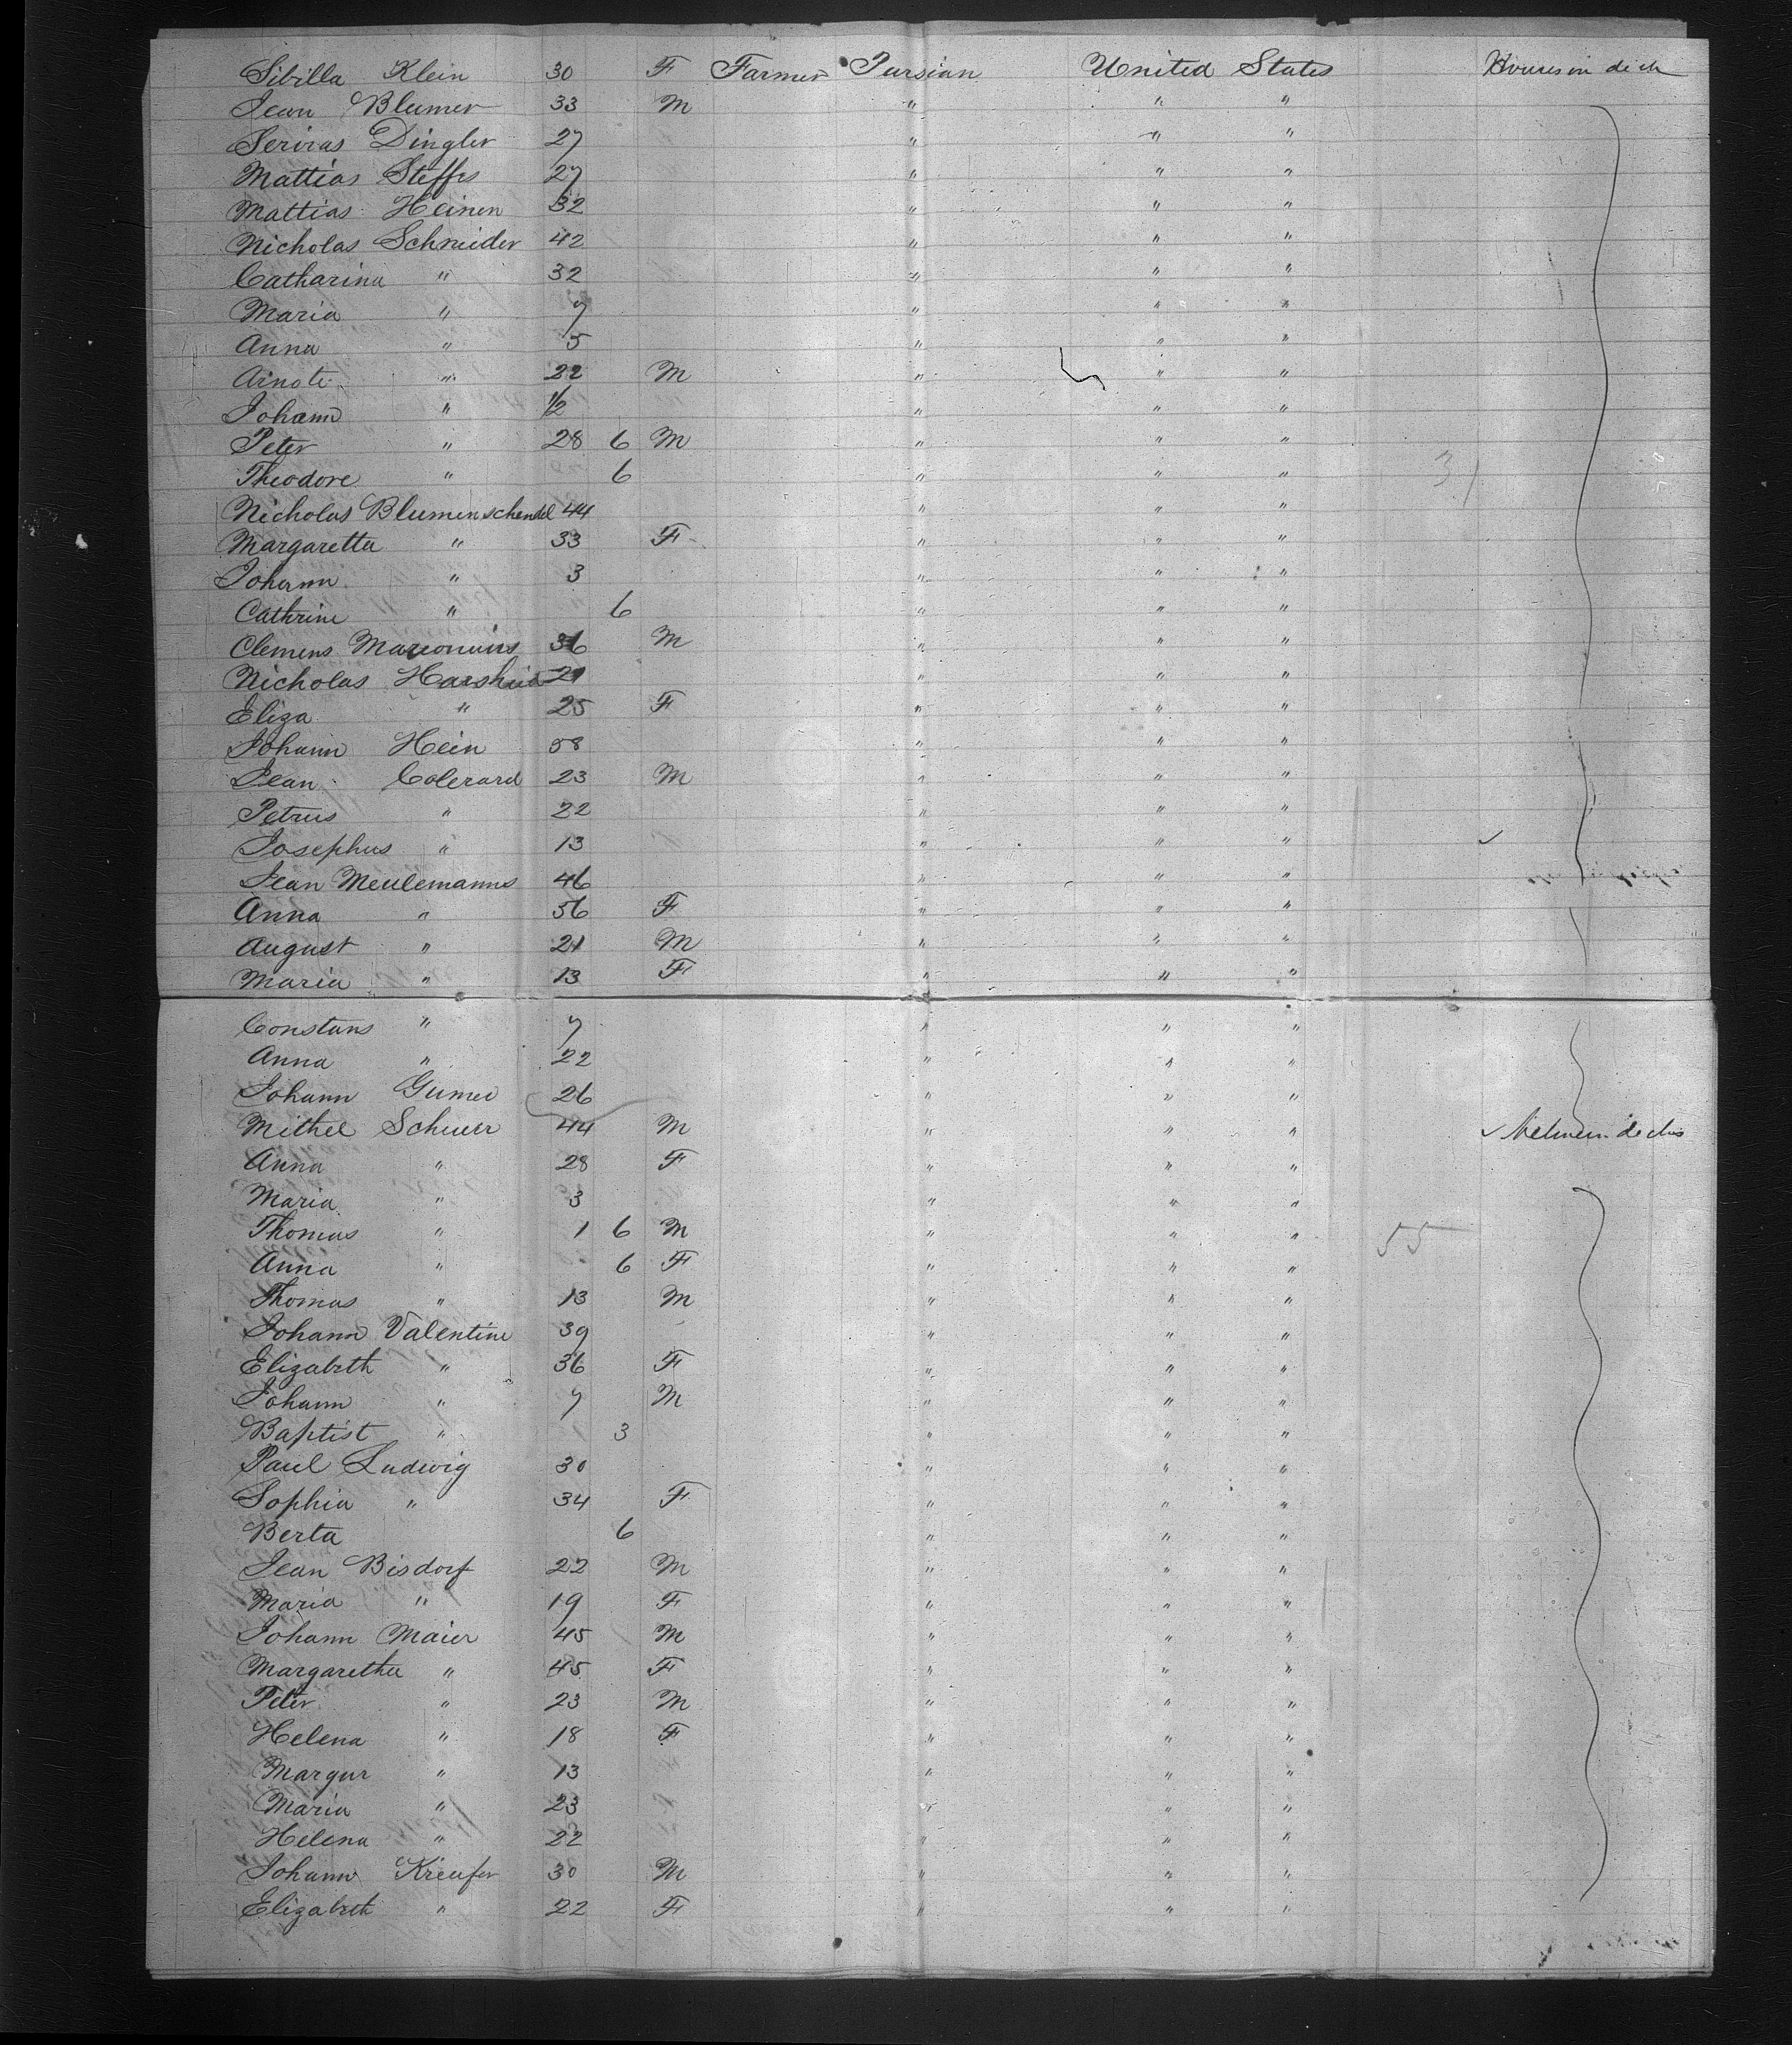 Sibilla Klein 30 F Farmer Pursian United States
Jean Blumer 33 M " " "
Servias Dingler 27 " " "
Mattias Steffes 27 " " "
Mattias Heinen 32 " " "
Nicholas Schneider 42 " " "
Catharina " 32 " " "
Maria " 7 " " "
Anna " 5 " " "
" 22 M " " "
Johann " 1/2 " " "
Peter " 28 6 M " " "
Theodore " 6 " " " 31
Nicholas Blumenschendel 44 " " "
Margaretta " 33 F " " "
Johann " 3 " " "
Cathrine " 6 " " "
Clemens 36 M " " "
Nicholas 29 " " "
Eliza " 25 F " " "
Johann Hein 58 " " "
Jean Colerard 23 M " " "
Petrus " 22 " " "
Josephus " 13 " " " ✓
Jean Meulemanns 46 " " "
Anna " 56 F " " "
August " 21 M " " "
Maria " 13 F " " "
Constans " 7 " " "
Anna " 22 " " "
Johann 26 " " "
Mithel Scheuer 44 M " " " ✓
Anna " 28 F " " "
Maria " 3 " " "
Thomas " 1 6 M " " " 55
Anna " 6 F " " "
Thomas " 13 M " " "
Johann Valentine 39 " " "
Elizabeth " 36 F " " "
Johann " 7 M " " "
Baptist " 3 " " "
Paul Ludwig 30 " " "
Sophia " 34 F " " "
Berta 6 " " "
Jean Bisdorf 22 M " " "
Maria " 19 F " " "
Johann Maier 45 M " " "
Margaretha " 45 F " " "
Peter " 23 M " " "
Helena " 18 F " " "
Margur " 13 " " "
Maria " 23 " " "
Helena " 22 " " "
Johann Kreufer 30 M " " "
Elizabeth " 22 F " " "